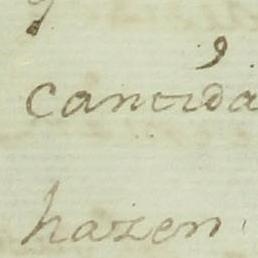 cantida
hazen